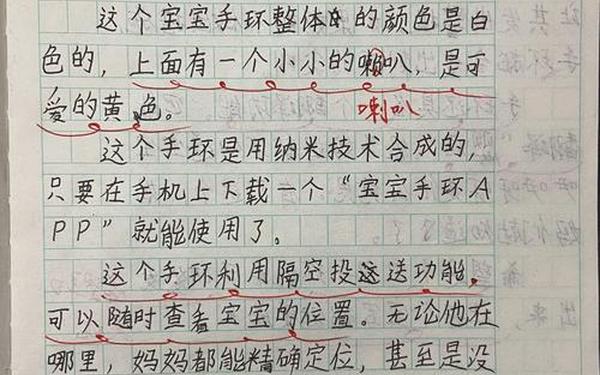 这个宝宝手环整体的颜色是白
色的，上面有一个小小的喇叭，是可
爱的黄色。
喇叭
这个手环是用纳米技术合成的，
只要在手机上下载一个“宝宝手环A
PP”就能使用了。
这个手环利用隔空投送功能，
可以随时查看宝宝的位置。无论他在
哪里，妈妈都能精确定位，甚至是没